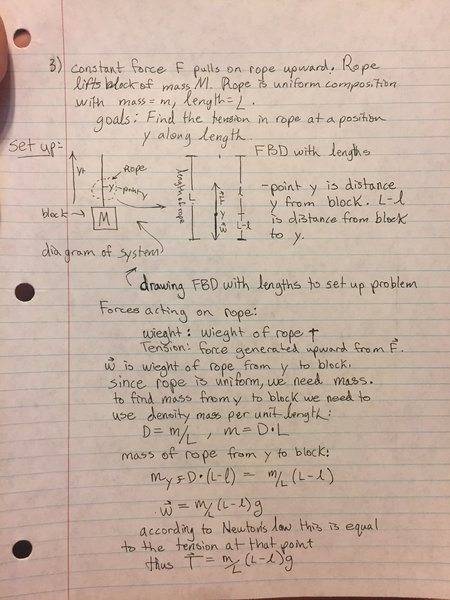 3) constant force F pulls on rope upward. Rope
lifts block of mass M. Rope is uniform composition
with mass = m, length = L.
goals: Find the tension in rope at a position
y along length.
set up:
FBD with lengths
Rope
y
point y
block
M
length of rope
L
l
L-l
- point y is distance
y from block. L-l
is distance from block
to y.
diagram of system
drawing FBD with lengths to set up problem
Forces acting on rope:
wieght: wieght of rope ↑
Tension: force generated upward from F⃗.
w⃗ is wieght of rope from y to block.
since rope is uniform, we need mass.
to find mass from y to block we need to
use density mass per unit length:
D = m/L , m = D·L
mass of rope from y to block:
my = D·(L-l) = m/L (L-l)
w⃗ = m/L (L-l)g
according to Newton's law this is equal
to the tension at that point
thus T⃗ = m/L (L-l)g